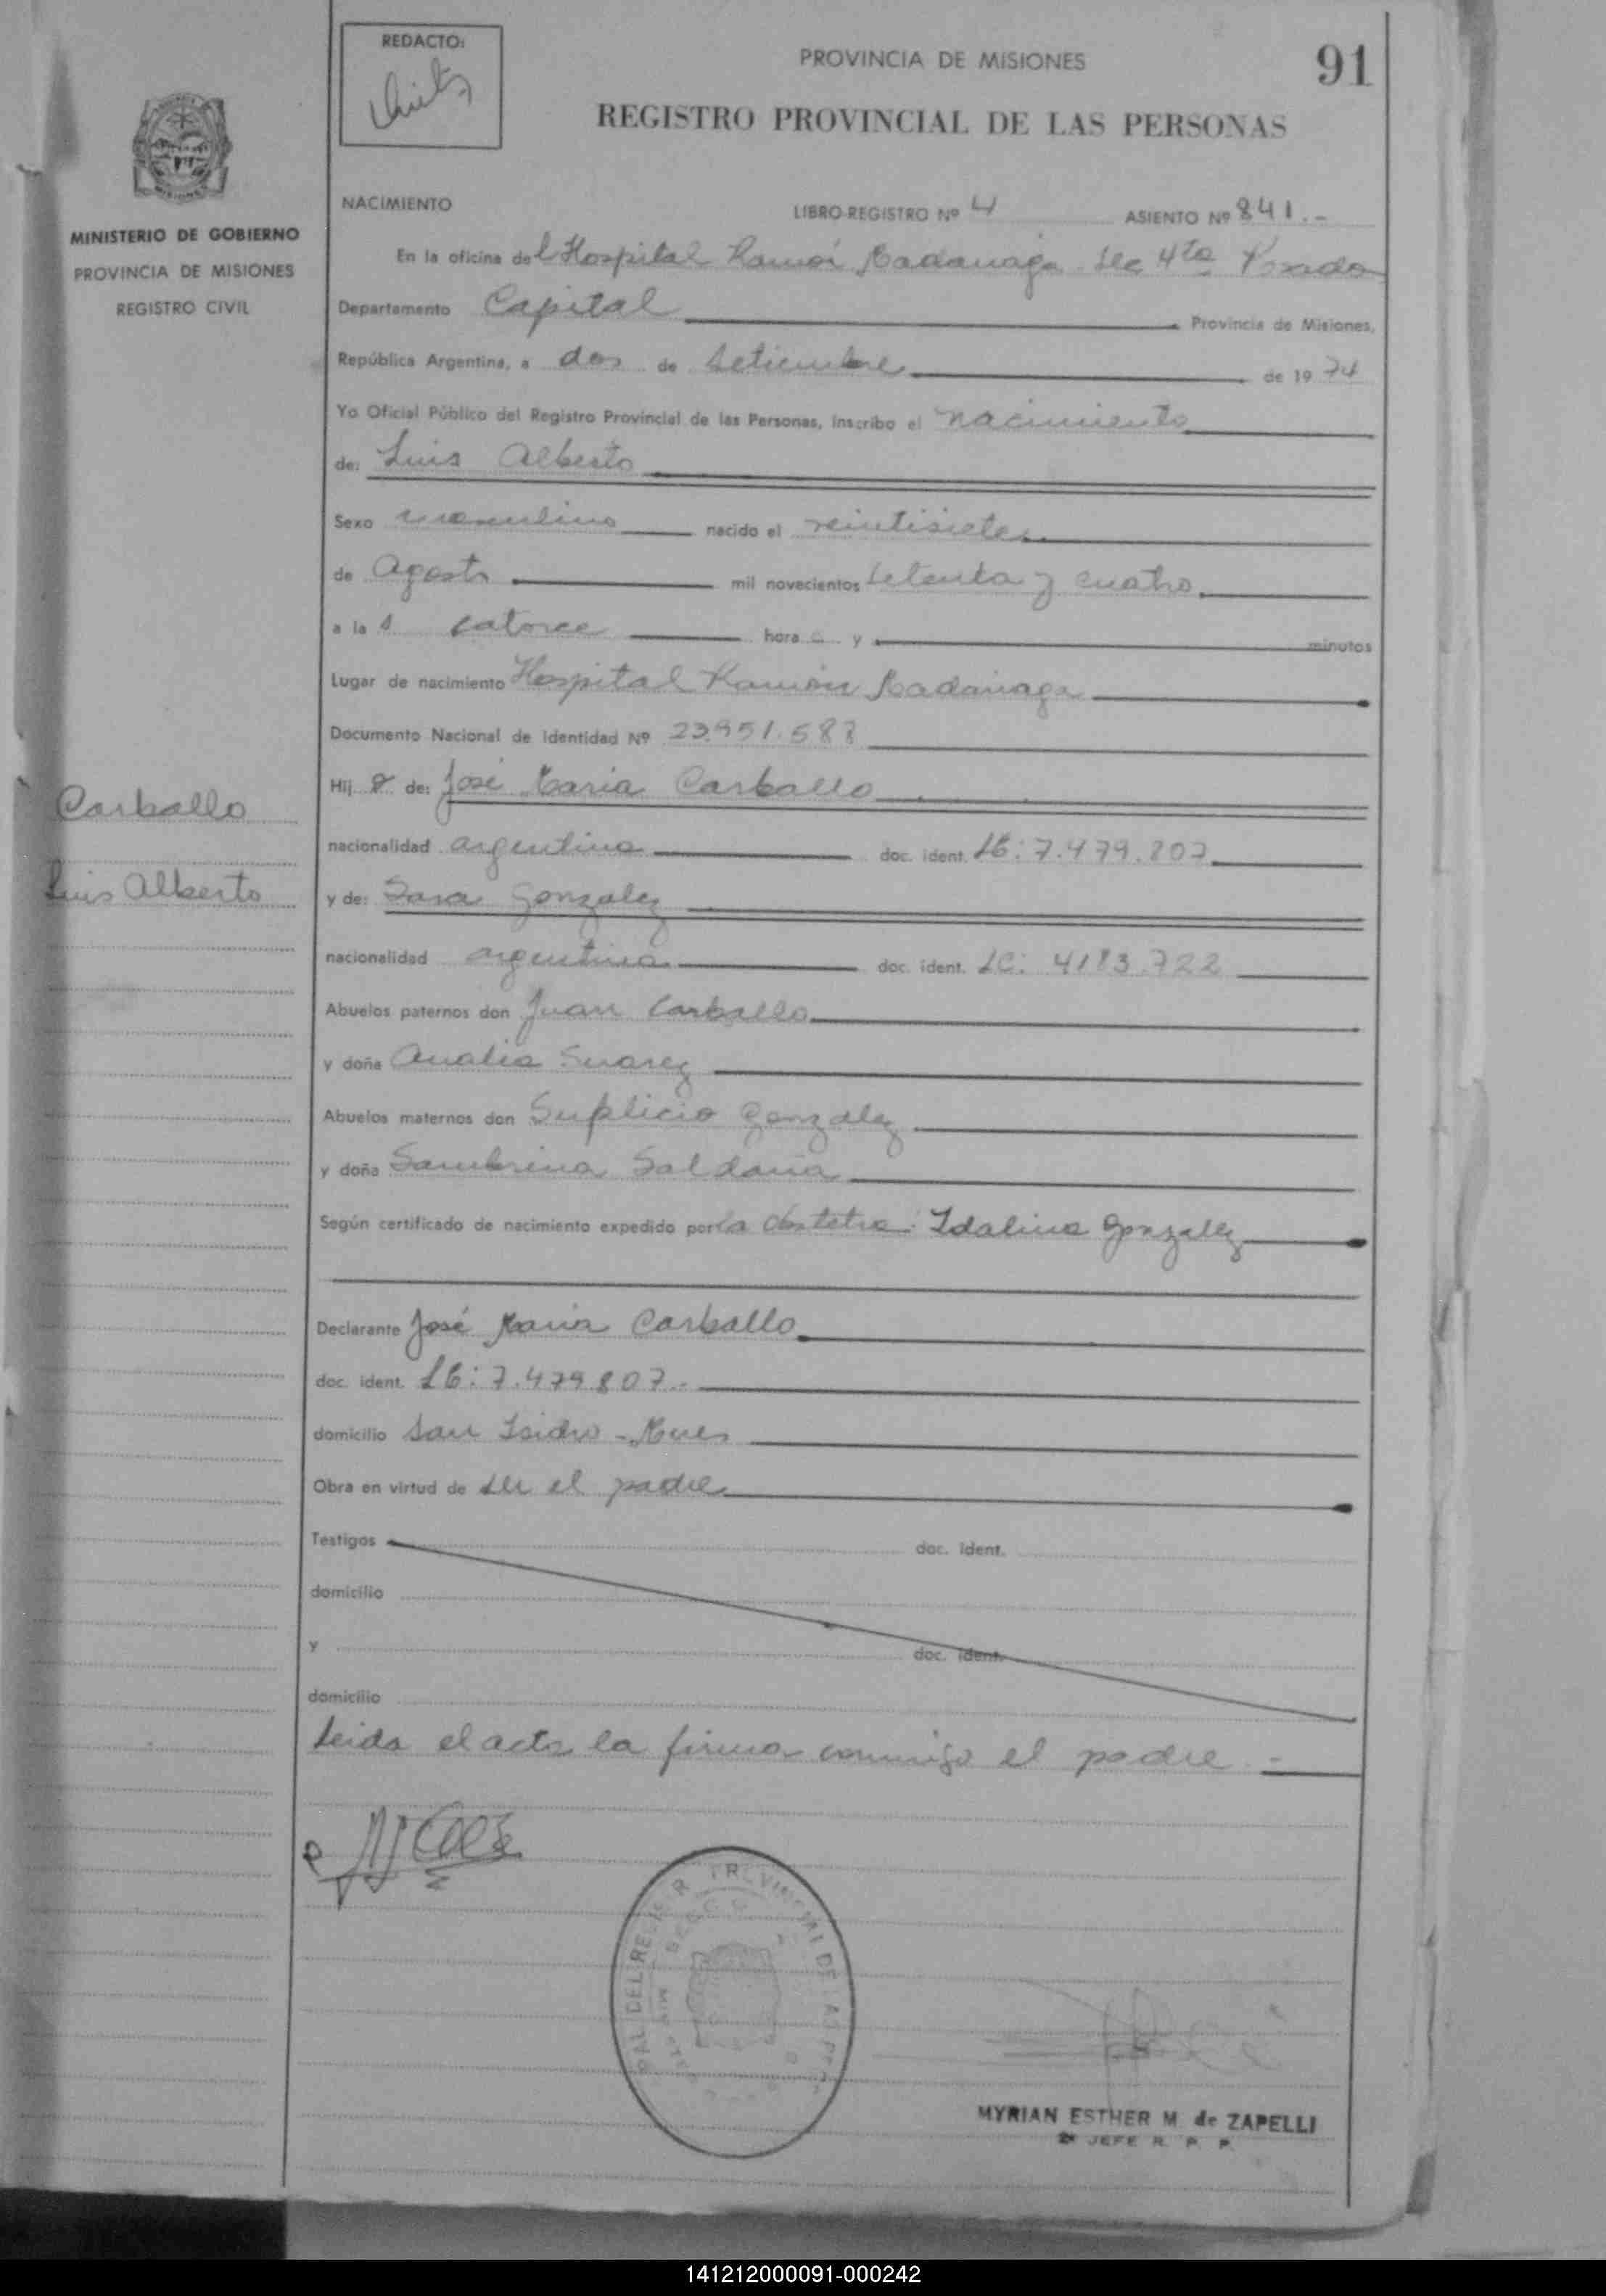 REDACTO:
PROVINCIA DE MISIONES
91
REGISTRO PROVINCIAL DE LAS PERSONAS
MINISTERIO DE GOBIERNO
PROVINCIA DE MISIONES
REGISTRO CIVIL
NACIMIENTO LIBRO-REGISTRO Nº 4 ASIENTO Nº 841.-
En la oficina del Hospital Ramón Madariaga Sec 4ta Posadas
Departamento Capital Provincia de Misiones,
República Argentina, a dos de Setiembre de 1974
Yo Oficial Público del Registro Provincial de las Personas, inscribo el nacimiento
de: Luis Alberto
Sexo masculino nacido el veintisiete
de Agosto mil novecientos setenta y cuatro
a las catorce hora y minutos
Lugar de nacimiento Hospital Ramón Madariaga
Documento Nacional de Identidad Nº
Hijo de: José Maria Carballo
Carballo
nacionalidad argentina doc. ident. LE: 7.479.807
Luis Alberto
y de: Sara Gonzalez
nacionalidad argentina doc. ident. LC: 4183.722
Abuelos paternos don Juan Carballo
y doña Analia Suarez
Abuelos maternos don Suplicio Gonzalez
y doña Sambrina Saldaña
Según certificado de nacimiento expedido por la obstetra: Idalina Gonzalez
Declarante José Maria Carballo
doc. ident. LE: 7.479.807.-
domicilio San Isidro - Mnes
Obra en virtud de ser el padre
Testigos doc. ident.
domicilio
y doc. ident.
domicilio
Leida el acta la firma conmigo el padre.-
MYRIAN ESTHER M. de ZAPELLI
2º JEFE R. P. P.
141212000091-000242